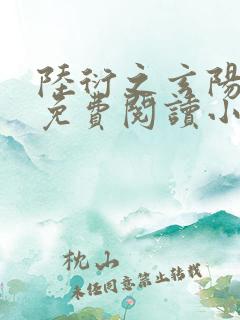 陸衍之玄陽
免費閱讀小
枕山
未经同意禁止转载